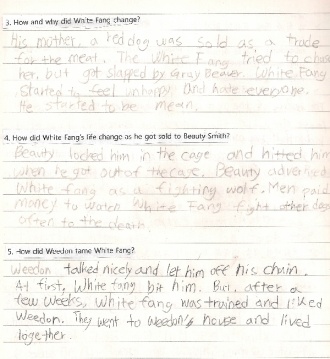 3. How and why did White Fang change?
His mother, a red dog was sold as a trade
for the meat. The White Fang tried to chase
her, but got slapped by Gray Beaver. White Fang
started to feel unhappy and hate everyone.
He started to be mean.
4. How did White Fang's life change as he got sold to Beauty Smith?
Beauty locked him in the cage and hitted him
when he got out of the cage. Beauty advertised
White fang as a fighting wolf. Men paid
money to watch White Fang fight other dogs
often to the death.
5. How did Weedon tame White Fang?
Weedon talked nicely and let him off his chain.
At first, White fang bit him. But, after a
few weeks, White fang was trained and liked
Weedon. They went to Weedon's house and lived
together.